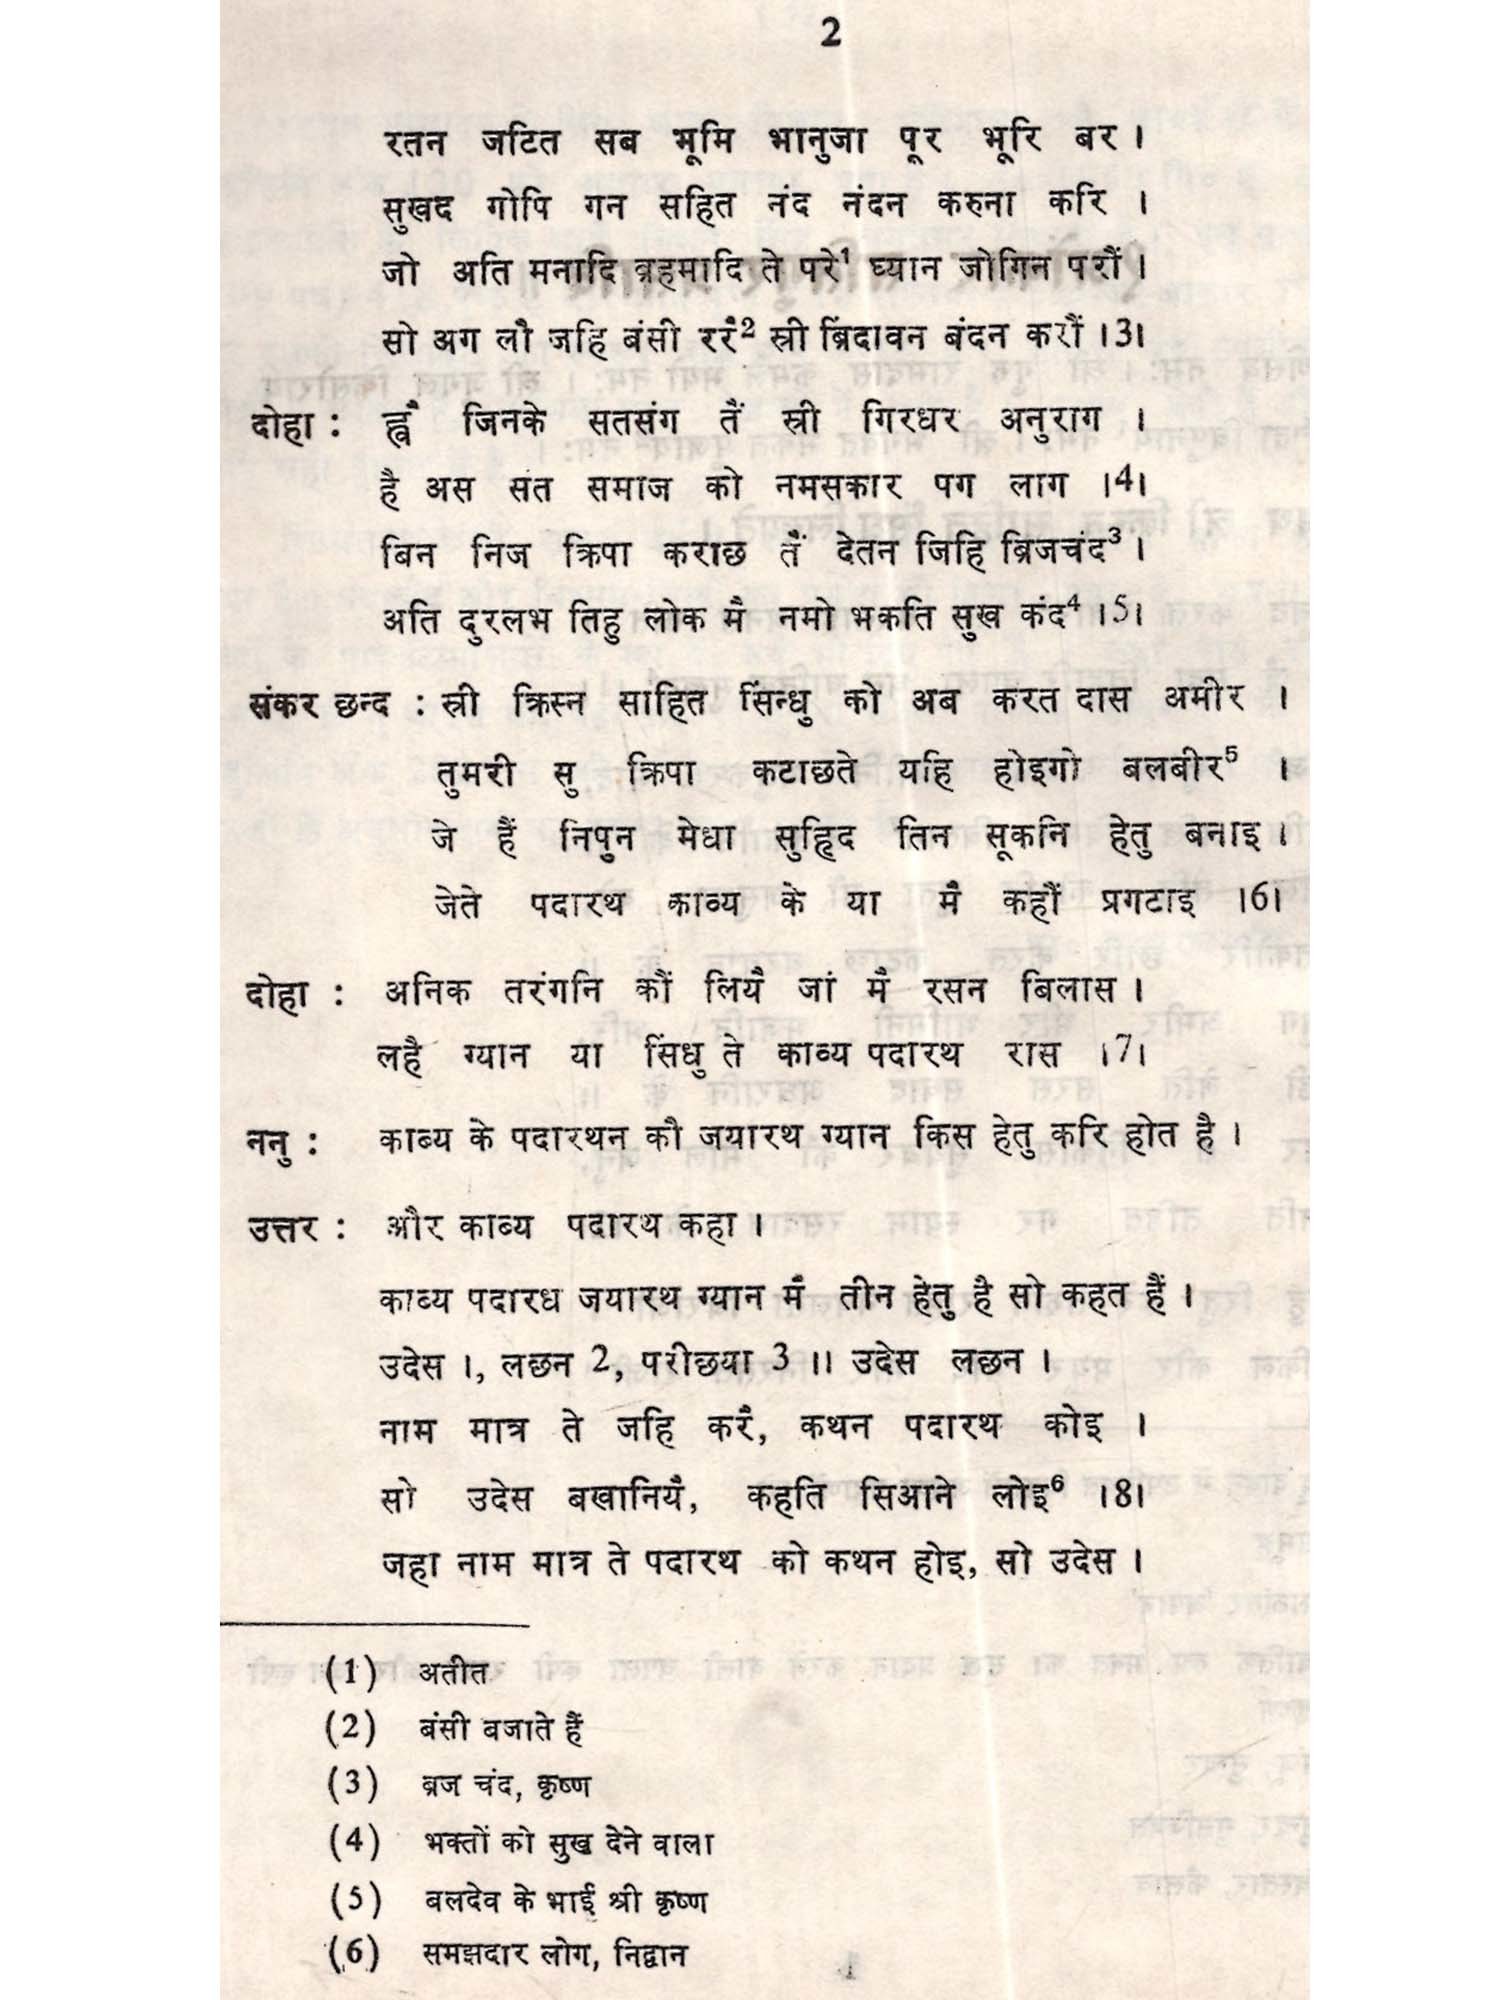 2
रतन जटित सब भूमि भानुजा पूर भूरि बर ।
सुखद गोपि गन सहित नंद नंदन करुना करि ।
जो अति मनादि ब्रहमादि ते परे¹ ध्यान जोगिन परौं ।
सो अग लौ जहि बंसी ररैं² स्री ब्रिंदावन बंदन करौं ।3।
दोहा : ह्वैं जिनके सतसंग तैं स्री गिरधर अनुराग ।
है अस संत समाज को नमसकार पग लाग ।4।
बिन निज क्रिपा कराछ तैं देतन जिहि ब्रिजचंद³ ।
अति दुरलभ तिहु लोक मैं नमो भकति सुख कंद⁴ ।5।
संकर छन्द : स्री क्रिस्न साहित सिंन्धु को अब करत दास अमीर ।
तुमरी सु क्रिपा कटाछते यहि होइगो बलबीर⁵ ।
जे हैं निपुन मेधा सुह्रिद तिन सूकनि हेतु बनाइ ।
जेते पदारथ काव्य के या मैं कहौं प्रगटाइ ।6।
दोहा : अनिक तरंगनि कौं लियैं जां मैं रसन बिलास ।
लहै ग्यान या सिंधु ते काव्य पदारथ रास ।7।
ननु : काब्य के पदारथन कौ जयारथ ग्यान किस हेतु करि होत है ।
उत्तर : और काब्य पदारथ कहा ।
काब्य पदारध जयारथ ग्यान मैं तीन हेतु है सो कहत हैं ।
उदेस ।, लछन 2, परीछया 3 ॥ उदेस लछन ।
नाम मात्र ते जहि करैं, कथन पदारथ कोइ ।
सो उदेस बखानियैं, कहति सिआने लोइ⁶ ।8।
जहा नाम मात्र ते पदारथ को कथन होइ, सो उदेस ।
(1) अतीत
(2) बंसी बजाते हैं
(3) ब्रज चंद, कृष्ण
(4) भक्तों को सुख देने वाला
(5) बलदेव के भाई श्री कृष्ण
(6) समझदार लोग, निद्वान